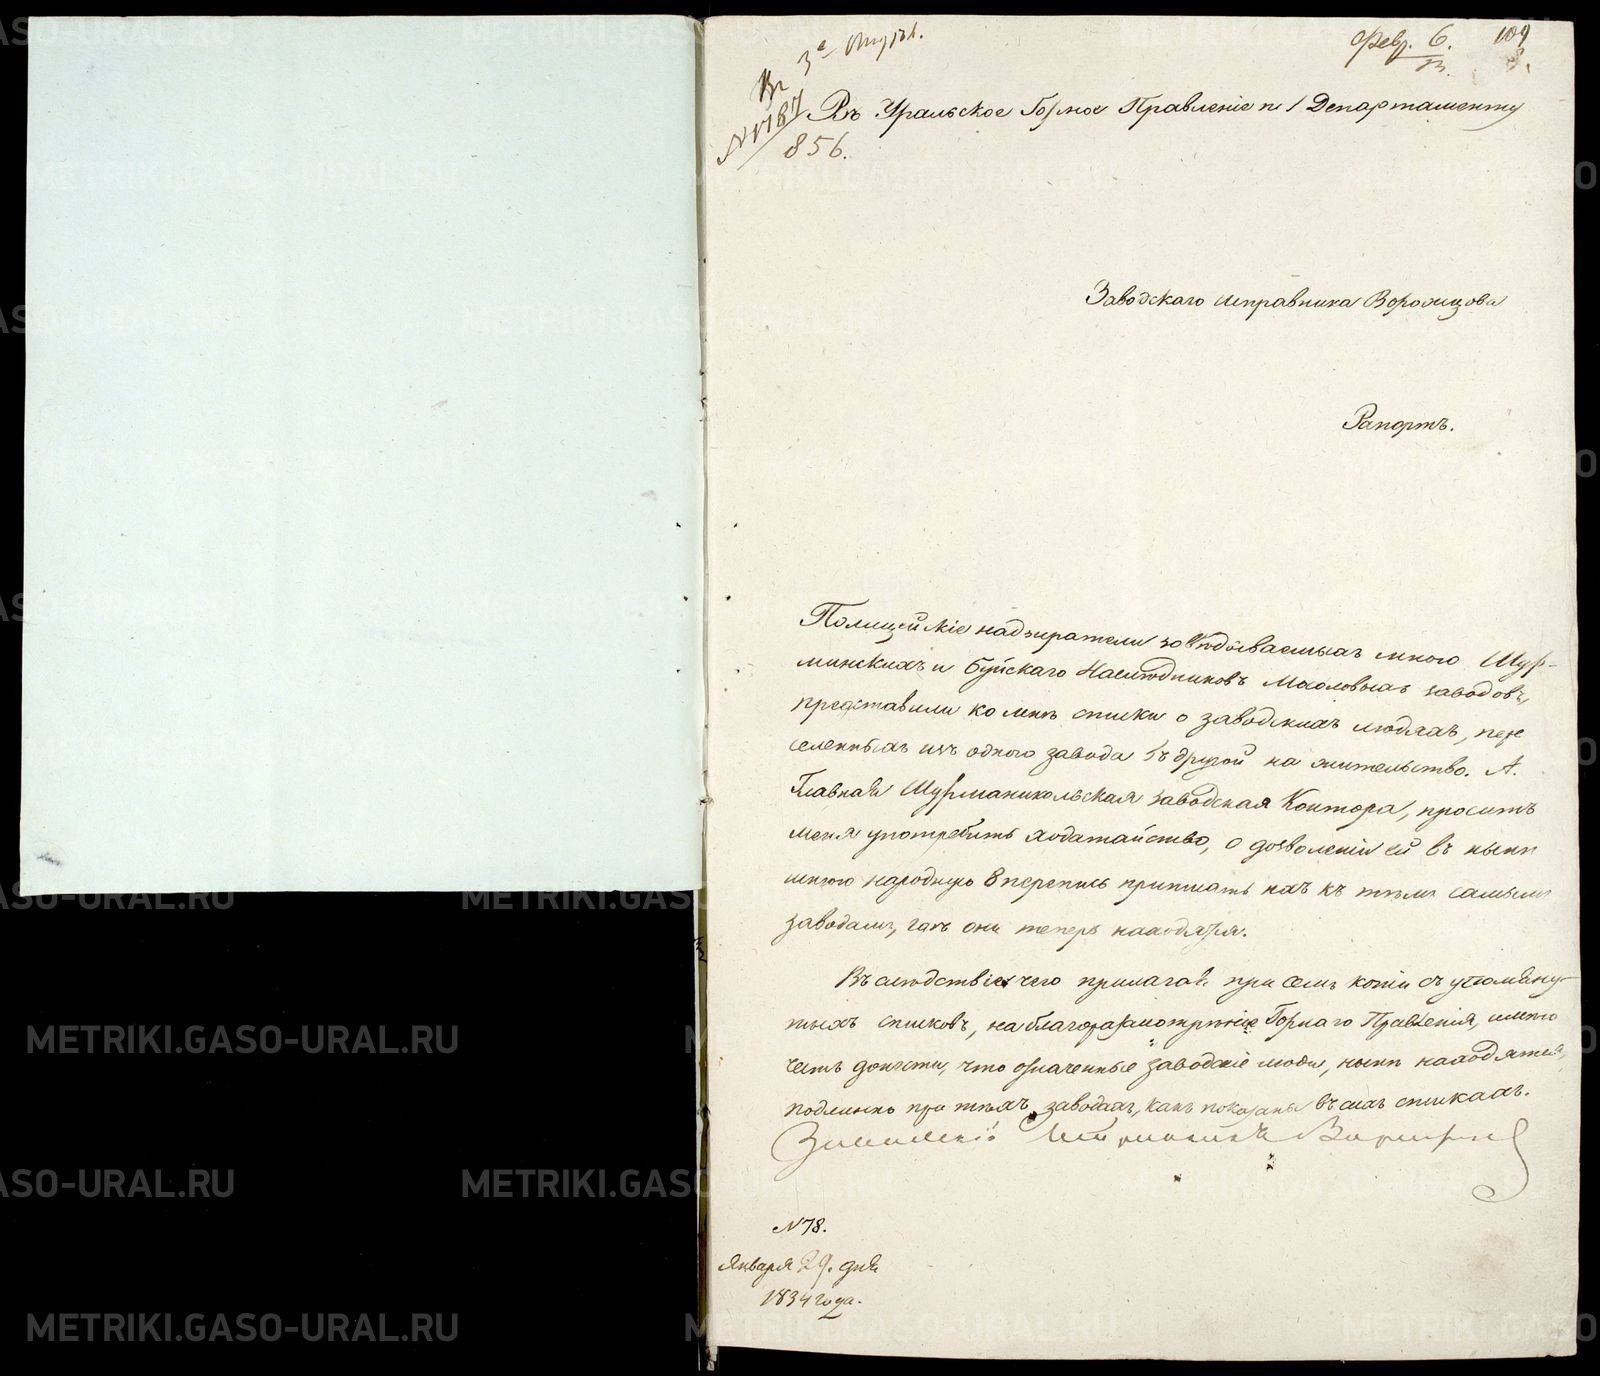 Февр. 6. 109
856.
Въ Уральское Горное Правленіе по 1 Департаменту
Заводскаго исправника Воронцова
Рапортъ.
Полицейскіе надзиратели мною Шур-
минскихъ и Буйскаго Наслѣдниковъ Мосоловыхъ заводовъ,
представили ко мнѣ списки о заводскихъ людяхъ, пере
селенныхъ изъ одного завода въ другой на жительство. А.
Главная Шурманикольская заводская Контора, проситъ
меня употребить ходатайство, о дозволеніи ей въ нынѣ
шнюю народную 8 перепись приписать ихъ къ тѣмъ самымъ
заводамъ, гдѣ они теперь находятся.
Въ слѣдствіе чего прилагая при семъ копіи съ упомяну-
тыхъ списковъ, на благоразсмотрѣніе Горнаго Правленія, имѣю
честь донести, что означенные заводскіе люди, нынѣ находятся,
подлинно при тѣхъ заводахъ, какъ показаны въ сихъ спискахъ.
№ 78.
Января 29. дня
1834 года.
METRIKI.GASO-URAL.RU